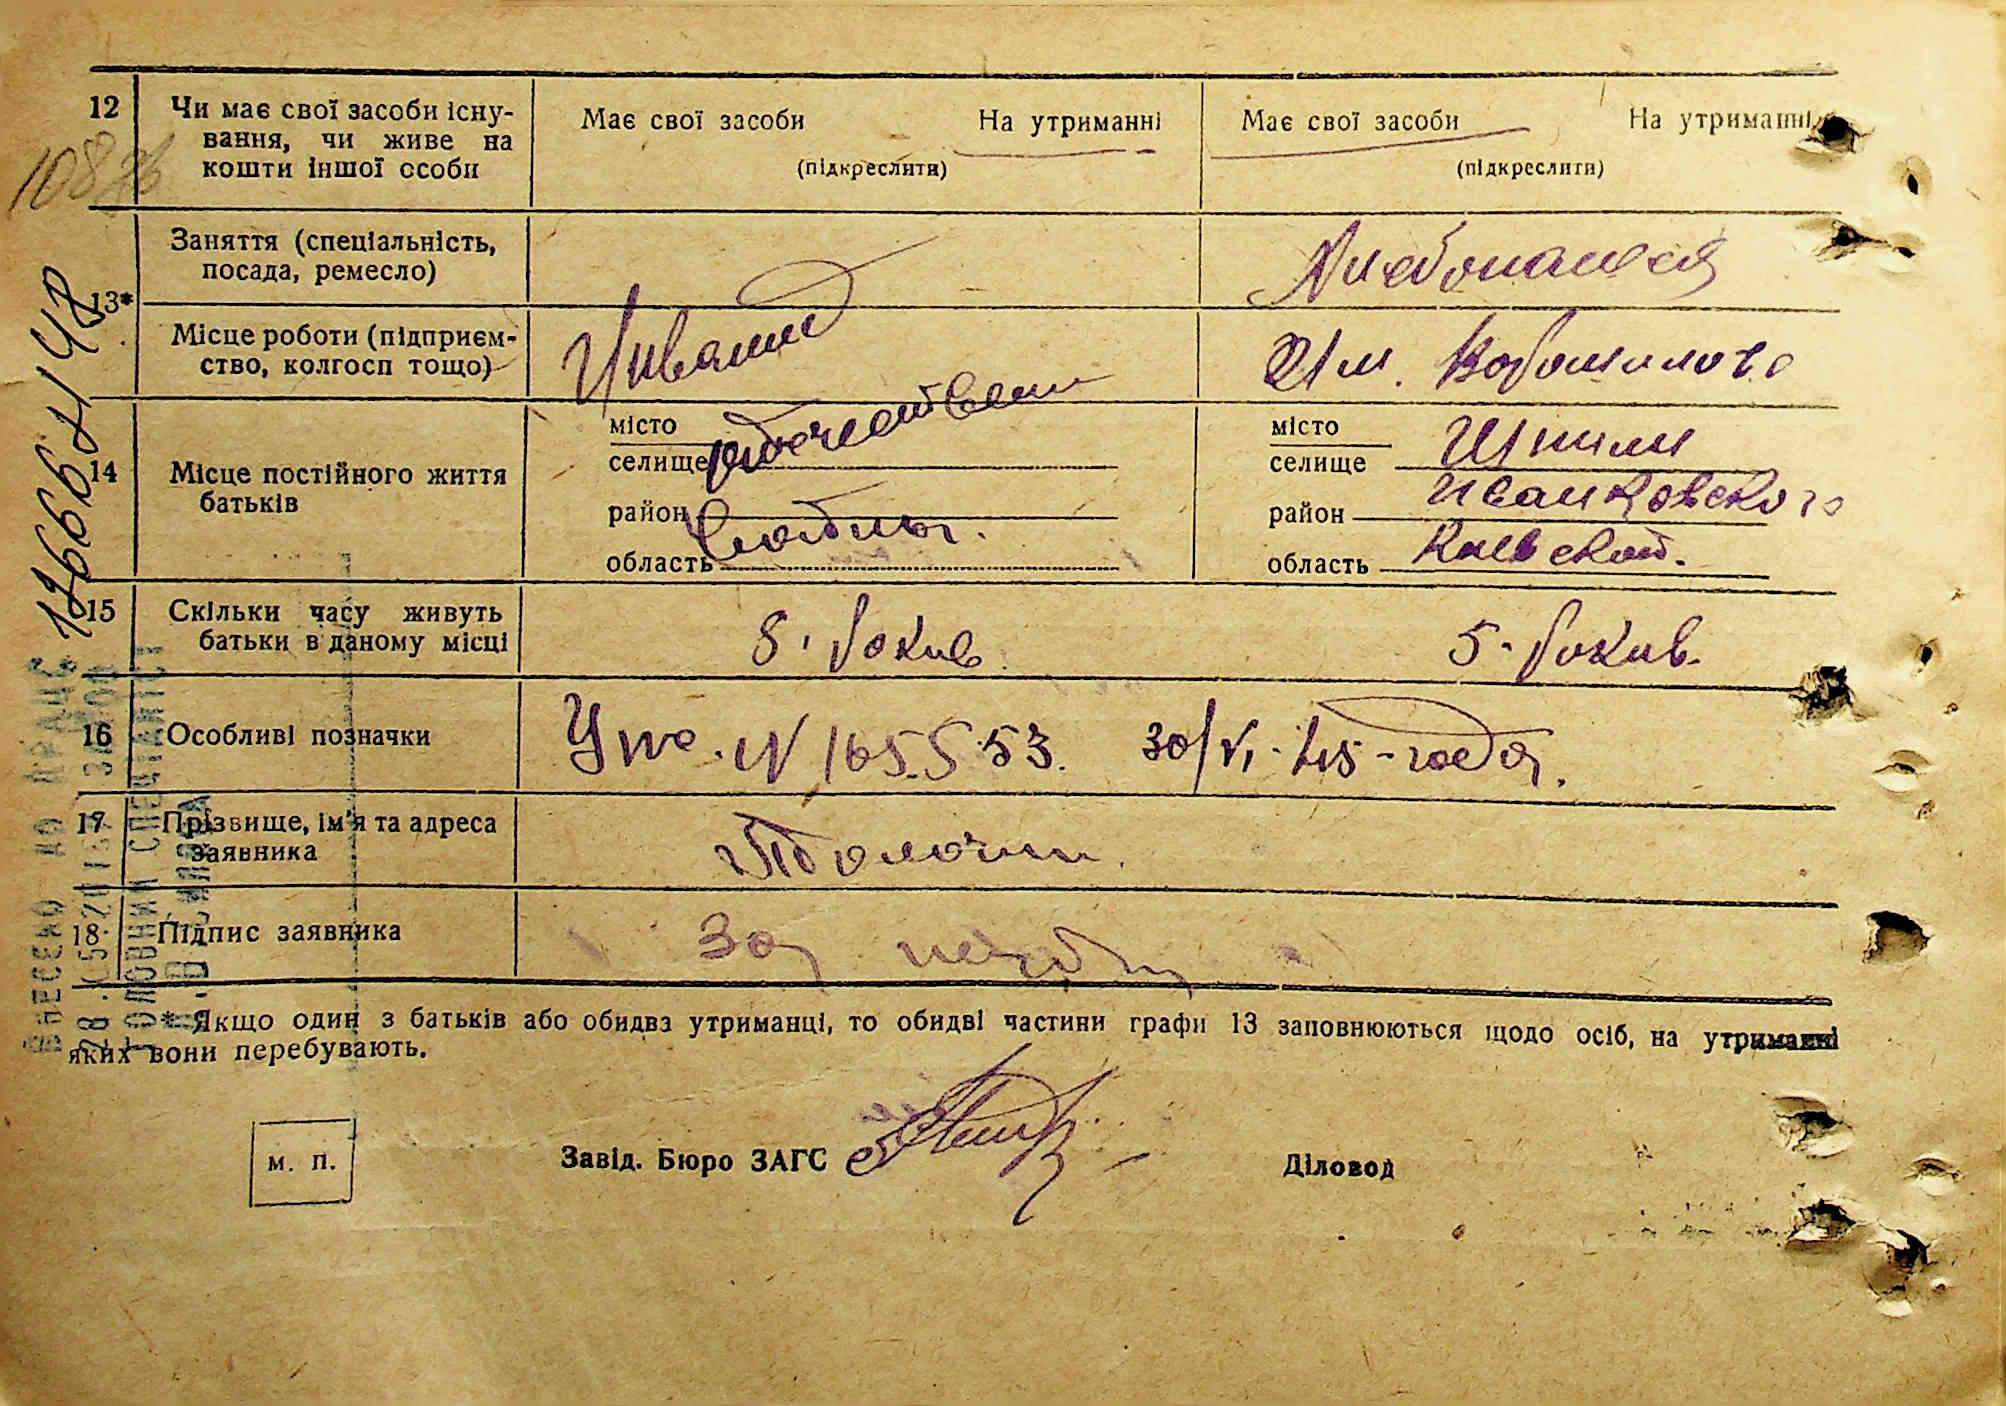 12 Чи має свої засоби існу-
вання, чи живе на
кошти іншої особи
Має свої засоби На утриманні
(підкреслити)
Має свої засоби На утриманні
(підкреслити)
13*
Заняття (спеціальність,
посада, ремесло)
Місце роботи (підприєм-
ство, колгосп тощо)
Инвалид
отечествен
войны.
Им. Ворошилова
14 Місце постійного життя
батьків
місто
селище
район
область
місто
селище Шпили
район Иванковского
область Киевской.
15 Скільки часу живуть
батьки в даному місці
5. Рокив
5. Рокив.
16 Особливі позначки
N 165553. 30/VI-45-года.
17 Прізвище, ім'я та адреса
заявника
18 Підпис заявника
За
* Якщо один з батьків або обидва утриманці, то обидві частини графи 13 заповнюються щодо осіб, на утриманні
яких вони перебувають.
м. п.
Завід. Бюро ЗАГС
Діловод
ВНЕСЕНО ДО ДРАЦС
ГОЛОВНИЙ СПЕЦІАЛІСТ